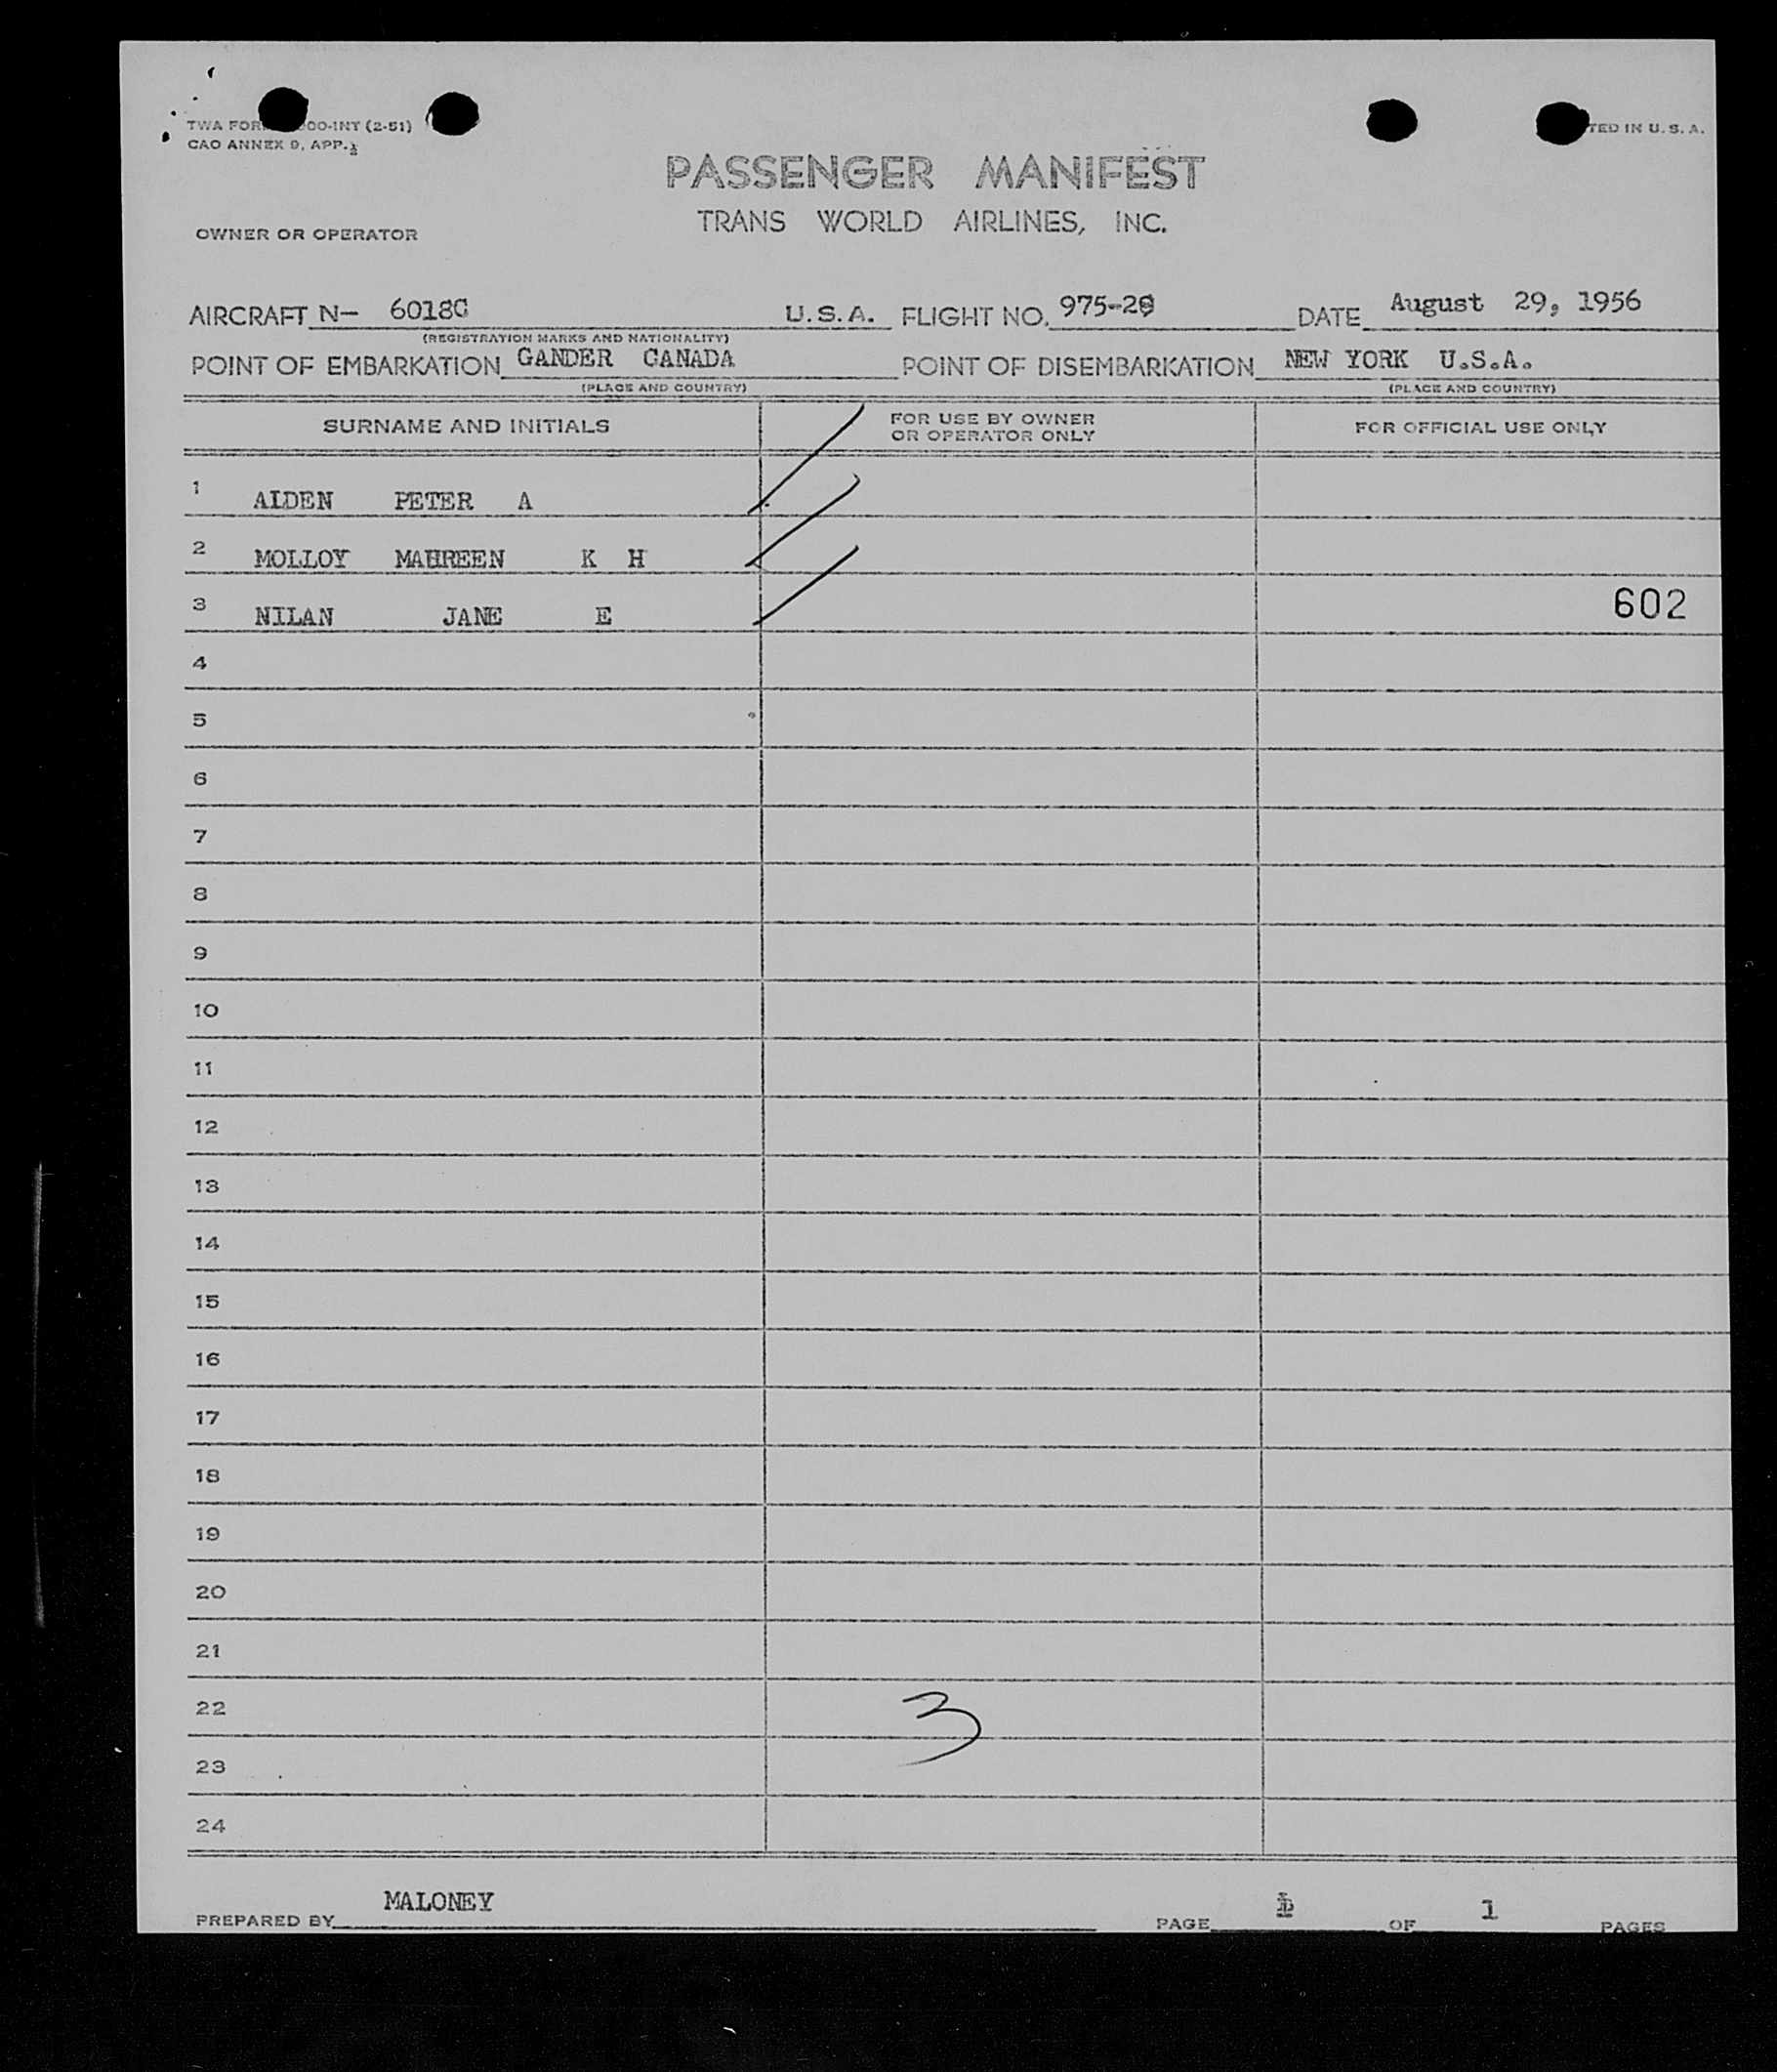 TWA FOR 00-INT (2-51)
TED IN U. S. A.
CAO ANNEX 9, APP.
PASSENGER MANIFEST
TRANS WORLD AIRLINES, INC.
OWNER OR OPERATOR
AIRCRAFT N- 6018C U.S.A. FLIGHT NO. 975-29 DATE August 29, 1956
(REGISTRATION MARKS AND NATIONALITY)
POINT OF EMBARKATION GANDER CANADA POINT OF DISEMBARKATION NEW YORK U.S.A.
(PLACE AND COUNTRY) (PLACE AND COUNTRY)
SURNAME AND INITIALS FOR USE BY OWNER OR OPERATOR ONLY FOR OFFICIAL USE ONLY
1 ALDEN PETER A
2 MOLLOY MAUREEN K H
3 NILAN JANE E 602
4
5
6
7
8
9
10
11
12
13
14
15
16
17
18
19
20
21
22 3
23
24
PREPARED BY MALONEY PAGE 1 OF 1 PAGES